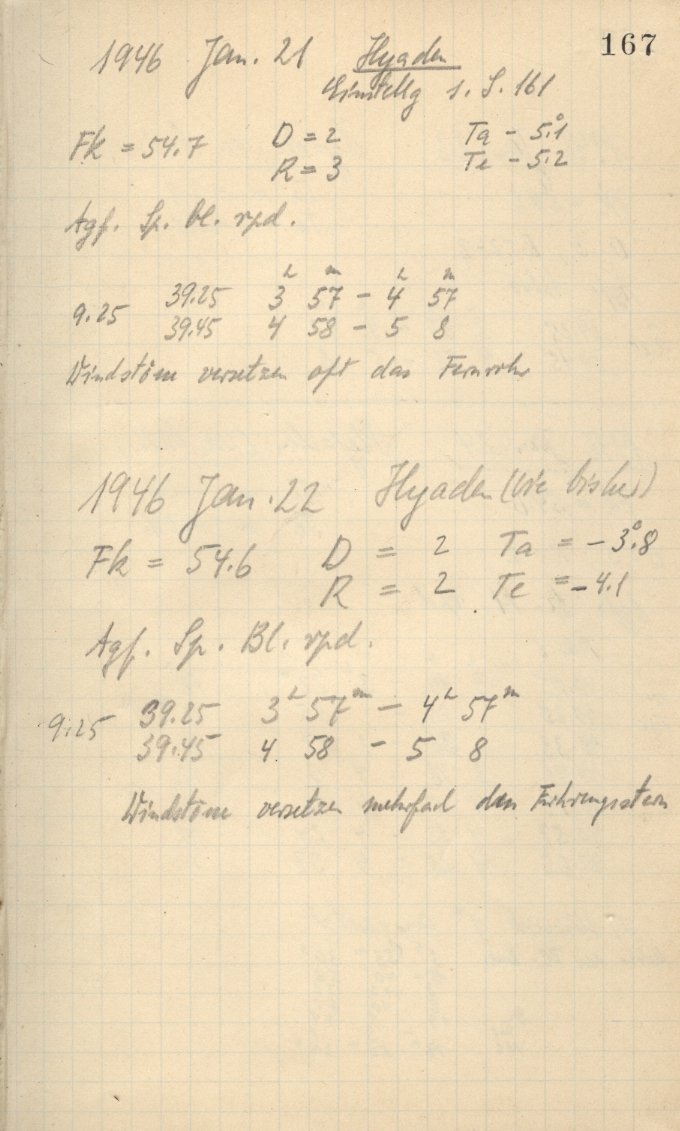 167
1946 Jan. 21 Hyaden
Einstellg 1. S. 161
Fk = 54.7 D = 2 Ta - 5.°1
R = 3 Te - 5.2
Agf. Sp. Bl. rpd.
9.25 39.25 3ʰ 57ᵐ - 4ʰ 57ᵐ
39.45 4 58 - 5 8
Windstöße versetzen oft das Fernrohr
1946 Jan. 22 Hyaden (wie bisher)
Fk = 54.6 D = 2 Ta = -3.°8
R = 2 Te = -4.1
Agf. Sp. Bl. rpd.
9.25 39.25 3ʰ 57ᵐ - 4ʰ 57ᵐ
39.45 4 58 - 5 8
Windstöße versetzen mehrfach den Führungsstern